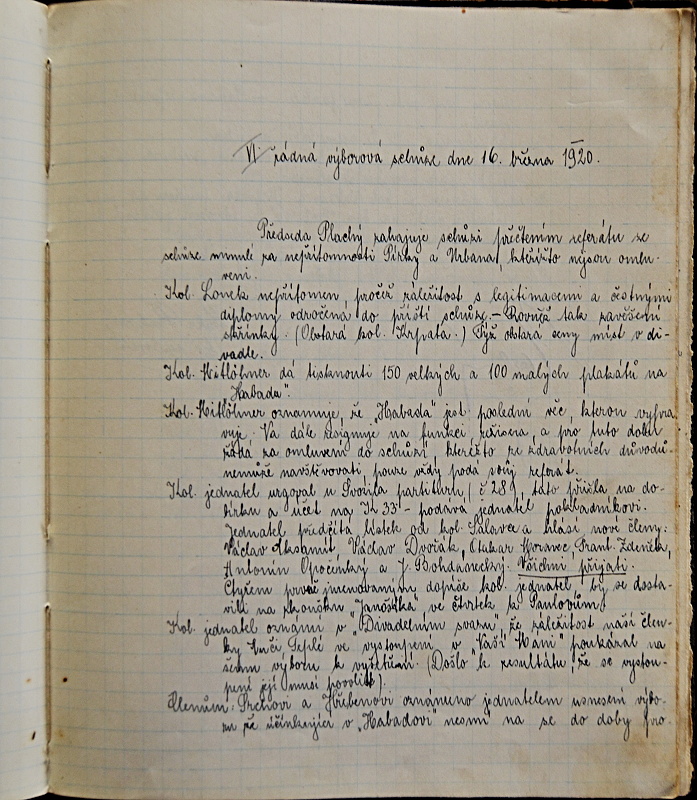 VI. řádná výborová schůze dne 16. března 1920.
Předseda Plachý zahajuje schůzi přečtením referátu ze
schůze minulé za nepřítomnosti Pírky a Urbana, kteřížto nejsou omlu-
veni.
Kol. Lonek nepřítomen, pročež záležitost s legitimacemi a čestnými
diplomy odročena do příští schůze. – Rovněž tak zavěšení
skřínky. (Obstará kol. Krpata.) Týž obstará ceny míst v di-
vadle.
Kol. Hitlöhner dá tisknouti 150 velkých a 100 malých plakátů na
"Habada".
Kol. Hitlöhner oznamuje, že "Habada" jest poslední věc, kterou vypra-
vuje. Na dále resignuje na funkci režisera, a pro tuto dobu
žádá za omluvení do schůzí, kteréžto ze zdravotních důvodů
nemůže navštěvovati, pouze vždy podá svůj referát.
Kol. jednatel urgoval u Švoila partituru, (č 28), tato přišla na do-
bírku a účet na K 33 – podává jednatel pokladníkovi.
Jednatel předčítá lístek od kol. Šálovce a hlásí nové členy:
Václav Aksamit, Václav Dvořák, Otakar Moravec, Frant. Zdeněk,
Antonín Opočenký a J. Bohdanecký. Všichni přijati.
Čtyřem prvně jmenovaným dopíše kol. jednatel, by se dosta-
vili na zkoušku "Janošíka" ve čtvrtek k Paulovům.
Kol. jednatel oznámí v "Divadelním svazu", že záležitost naší člen-
ky Enči Teplé ve vystoupení v "Naší Háni" poukázal na
šemu výboru k vyřešení. (Došlo k resultátu, že se vystou-
pení její musí povoliti).
Členům: a Hřebenovi oznámeno jednatelem usnesení výbo-
ru že účinkující v "Habadovi" nesmí na se do doby pro-